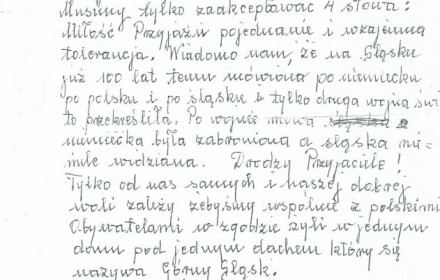 Musimy tylko zaakceptować 4 słowa:
Miłość Przyjaźń pojednanie i wzajemną
tolerancja. Wiadomo nam, że na Śląsku
już 100 lat temu mówiono po niemiecku
po polsku i po śląsku i tylko druga wojna świ
to przekreśliła. Po wojnie mowa
niemiecka była zabroniona a śląska nie-
mile widziana. Drodzy Przyjaciele!
Tylko od nas samych i naszej dobrej
woli zależy żebyśmy wspólnie z polskimi
Obywatelami w zgodzie żyli w jednym
domu pod jednym dachem który się
nazywa Górny Śląsk.